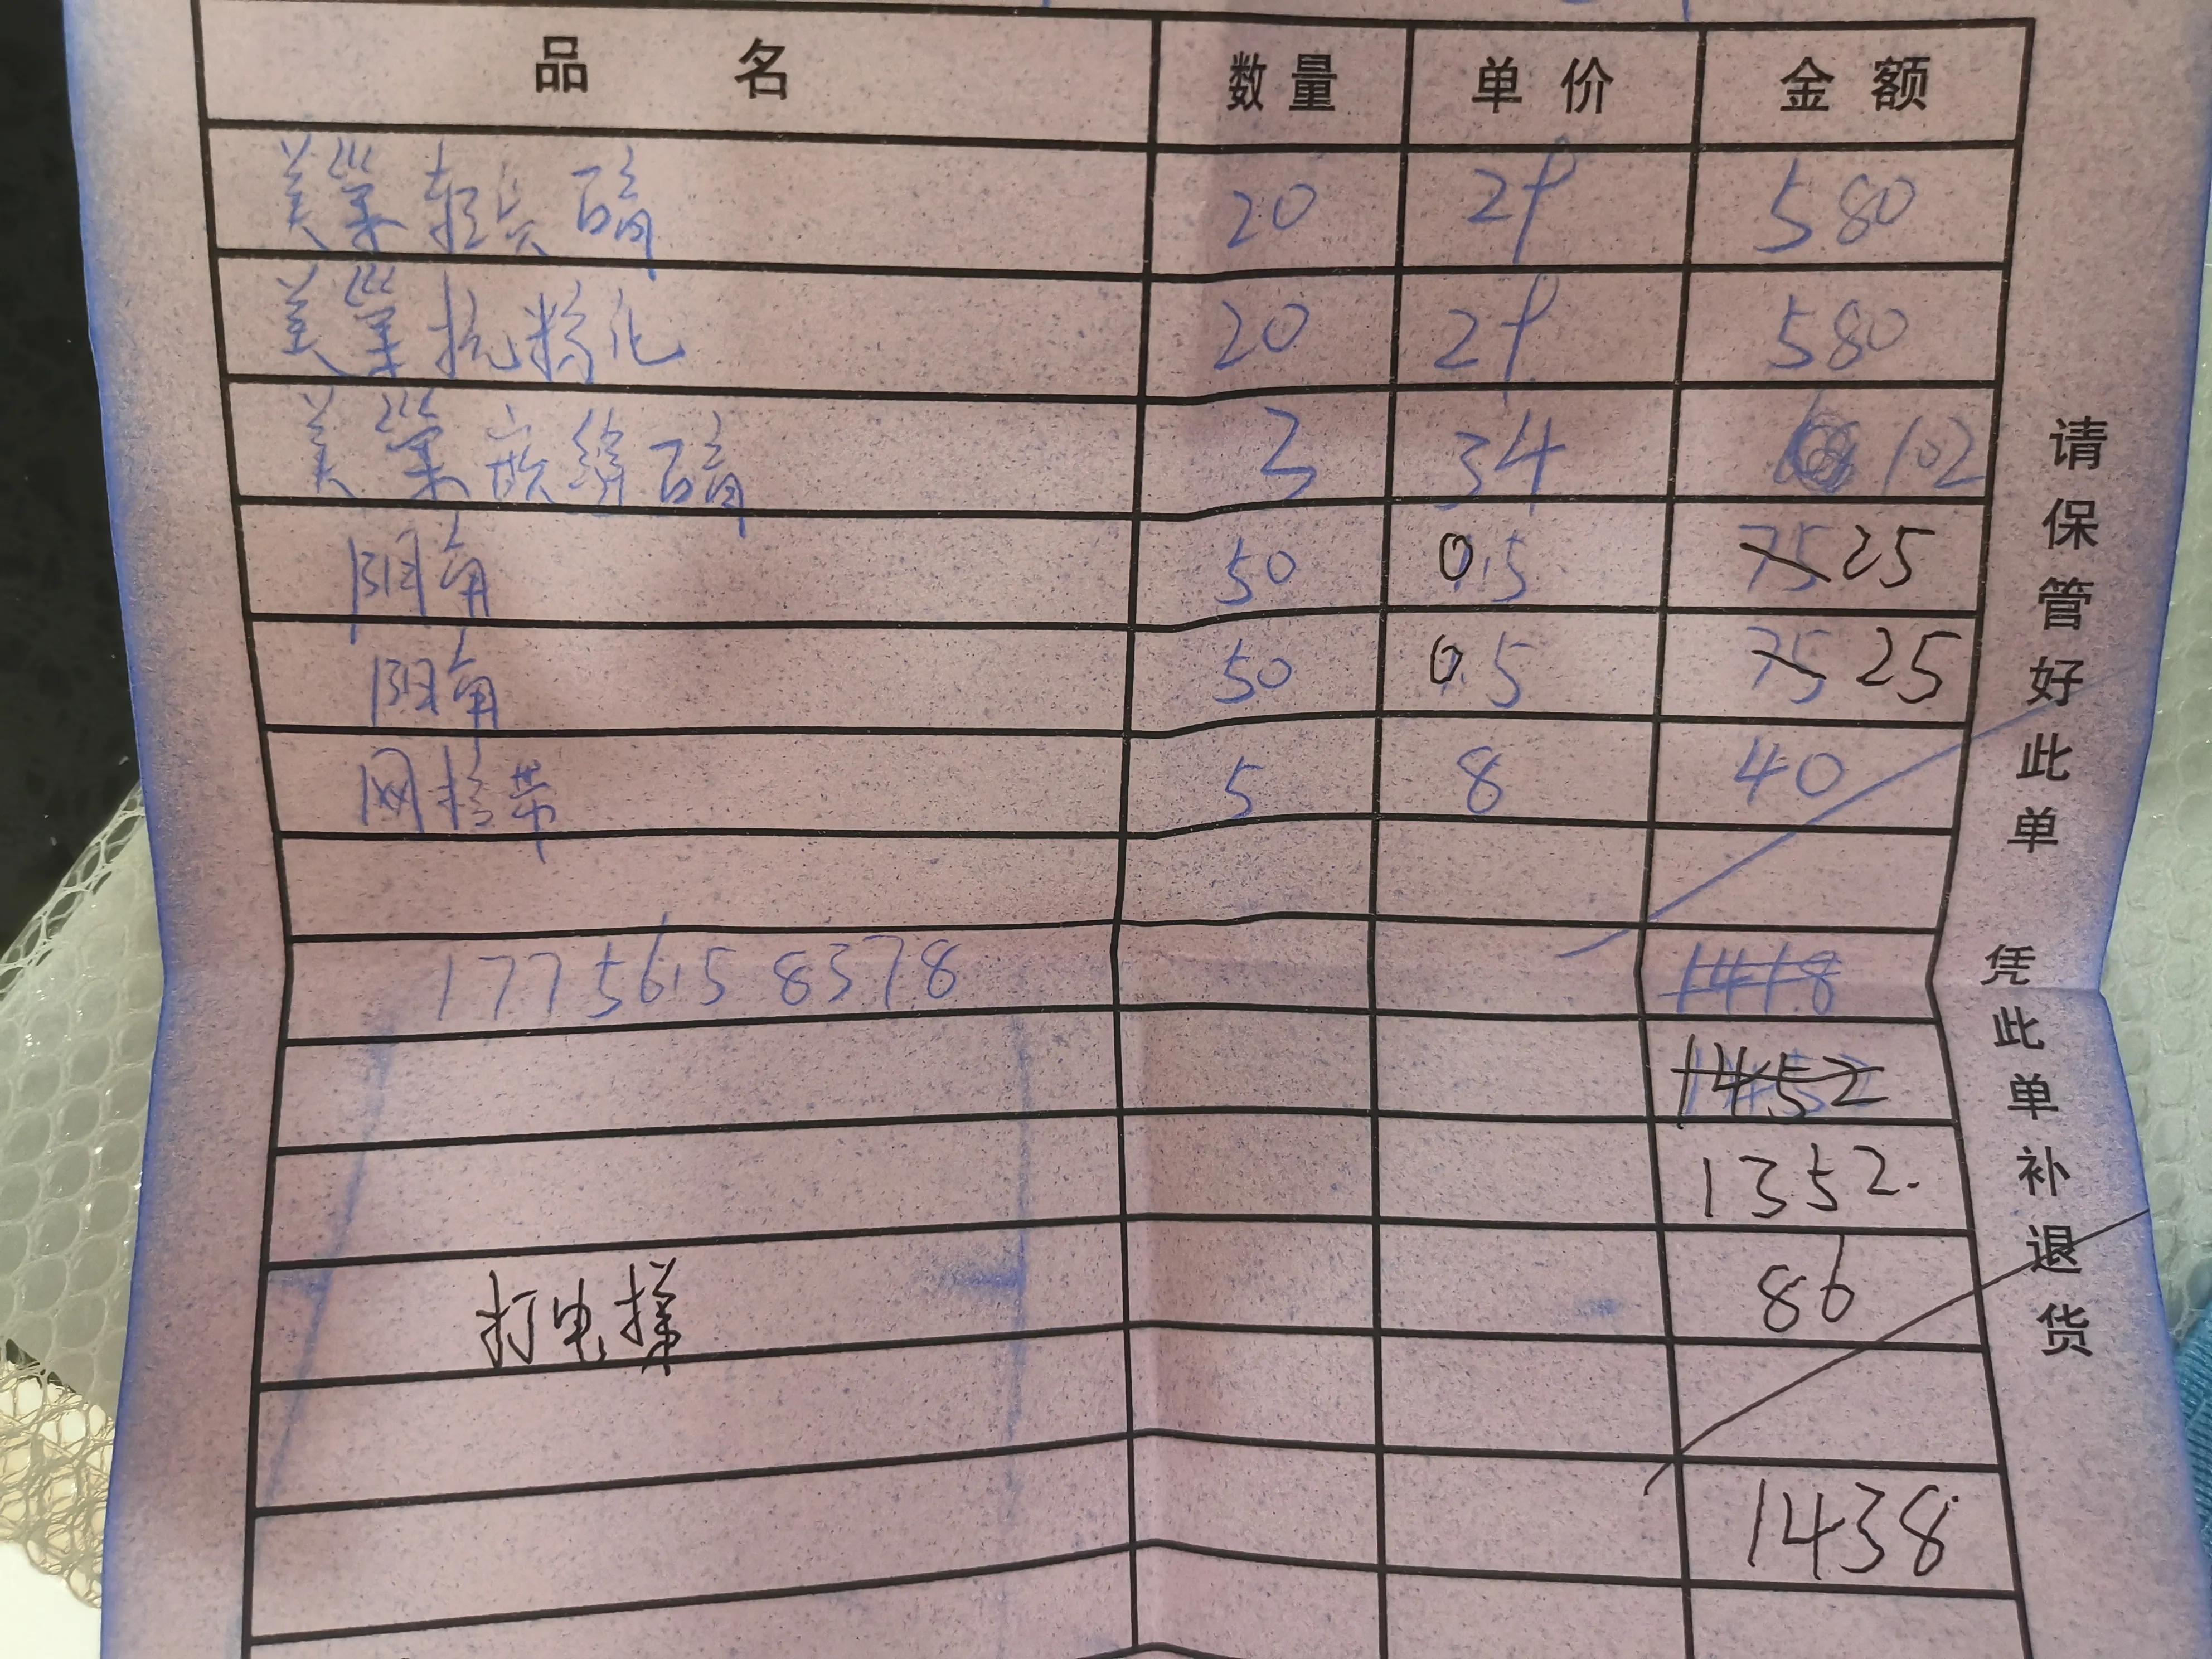 品 名 数量 单价 金额
美巢轻质石膏 20 29 580
美巢抗粉化 20 29 580
美巢嵌缝石膏 3 34 102
阴角 50 0.5 75 25
阳角 50 0.5 75 25
网格带 5 8 40
17756158378 1418
1452
1352.
打电撑 86
1438
请保管好此单 凭此单补退货